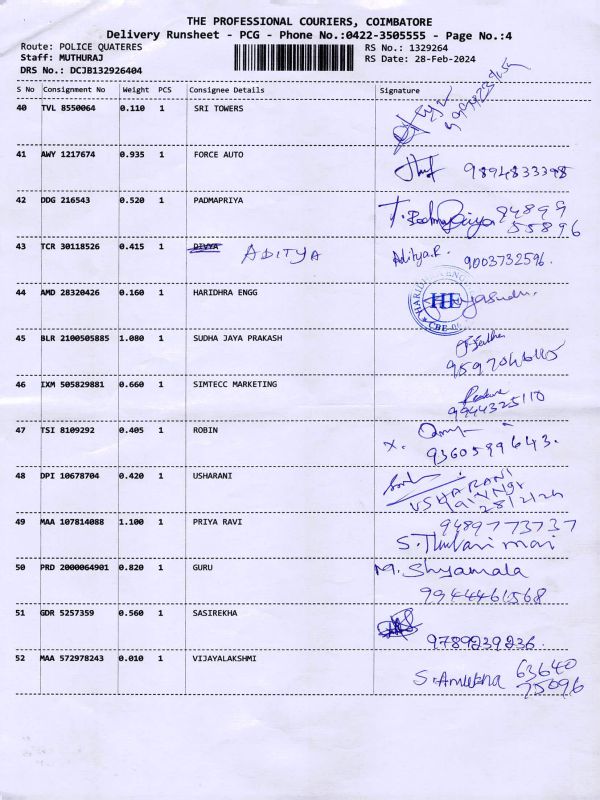 THE PROFESSIONAL COURIERS, COIMBATORE
Delivery Runsheet - PCG - Phone No.:0422-3505555 - Page No.:4
Route: POLICE QUATERES RS No.: 1329264
Staff: MUTHURAJ RS Date: 28-Feb-2024
DRS No.: DCJB132926404
S No Consignment No Weight PCS Consignee Details Signature
40 TVL 8550064 0.110 1 SRI TOWERS
41 AWY 1217674 0.935 1 FORCE AUTO
9894833398
42 DDG 216543 0.520 1 PADMAPRIYA
94899
55896
43 TCR 30118526 0.415 1 DIVYA ADITYA Aditya.R.
9003732596.
44 AMD 28320426 0.160 1 HARIDHRA ENGG
45 BLR 2100505885 1.080 1 SUDHA JAYA PRAKASH
46 IXM 505829881 0.660 1 SIMTECC MARKETING
9944325110
47 TSI 8109292 0.405 1 ROBIN
x.
9360599643.
48 DPI 10678704 0.420 1 USHARANI
USHARANI
28/2/24
49 MAA 107814088 1.100 1 PRIYA RAVI 9489773737
50 PRD 2000064901 0.820 1 GURU M. Shyamala
9944461568
51 GDR 5257359 0.560 1 SASIREKHA
9789239236.
52 MAA 572978243 0.010 1 VIJAYALAKSHMI
63640
75096